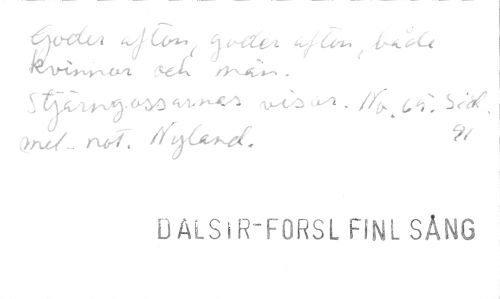 Goder afton, goder afton, både
kvinnor och män.
Stjärngossarnas visor. No. 69. Sid.
mel. not. Nyland. 91
DALSIR-FORSL FINL SÅNG